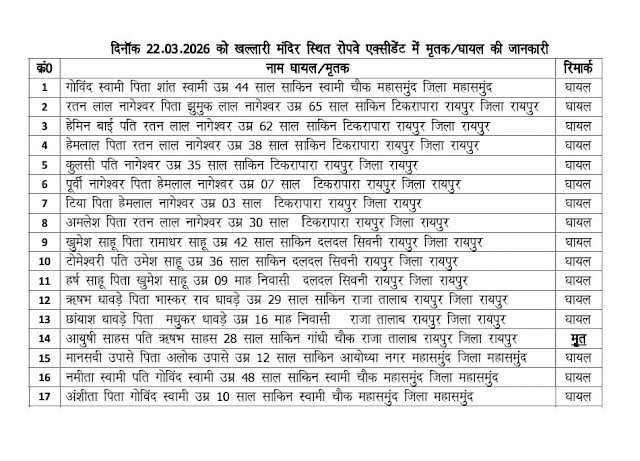 दिनॉंक 22.03.2026 को खल्लारी मंदिर स्थित रोपवे एक्सीडेंट में मृतक/घायल की जानकारी
कं0 नाम घायल/मृतक रिमार्क
1 गोविंद स्वामी पिता शांत स्वामी उम्र 44 साल साकिन स्वामी चौक महासमुंद जिला महासमुंद घायल
2 रतन लाल नागेश्वर पिता झुमुक लाल नागेश्वर उम्र 65 साल साकिन टिकरापारा रायपुर जिला रायपुर घायल
3 हेमिन बाई पति रतन लाल नागेश्वर उम्र 62 साल साकिन टिकरापारा रायपुर जिला रायपुर घायल
4 हेमलाल पिता रतन लाल नागेश्वर उम्र 38 साल साकिन टिकरापारा रायपुर जिला रायपुर घायल
5 कुलसी पति नागेश्वर उम्र 35 साल साकिन टिकरापारा रायपुर जिला रायपुर घायल
6 पूर्वी नागेश्वर पिता हेमलाल नागेश्वर उम्र 07 साल टिकरापारा रायपुर जिला रायपुर घायल
7 टिया पिता हेमलाल नागेश्वर उम्र 03 साल टिकरापारा रायपुर जिला रायपुर घायल
8 अमलेश पिता रतन लाल नागेश्वर उम्र 30 साल टिकरापारा रायपुर जिला रायपुर घायल
9 खुमेश साहू पिता रामाधर साहू उम्र 42 साल साकिन दलदल सिवनी रायपुर जिला रायपुर घायल
10 टोमेश्वरी पति उमेश साहू उम्र 36 साल साकिन दलदल सिवनी रायपुर जिला रायपुर घायल
11 हर्ष साहू पिता खुमेश साहू उम्र 09 माह निवासी दलदल सिवनी रायपुर जिला रायपुर घायल
12 ऋषभ धावड़े पिता भास्कर राव धावड़े उम्र 29 साल साकिन राजा तालाब रायपुर जिला रायपुर घायल
13 छांयाश धावड़े पिता मधुकर धावड़े उम्र 16 माह निवासी राजा तालाब रायपुर जिला रायपुर घायल
14 आयुषी साहस पति ऋषभ साहस 28 साल साकिन गांधी चौक राजा तालाब रायपुर जिला रायपुर मृत
15 मानसवी उपासे पिता अलोक उपासे उम्र 12 साल साकिन आयोध्या नगर महासमुंद जिला महासमुंद घायल
16 नमीता स्वामी पति गोविंद स्वामी उम्र 48 साल साकिन स्वामी चौक महासमुंद जिला महासमुंद घायल
17 अंशीता पिता गोविंद स्वामी उम्र 10 साल साकिन स्वामी चौक महासमुंद जिला महासमुंद घायल